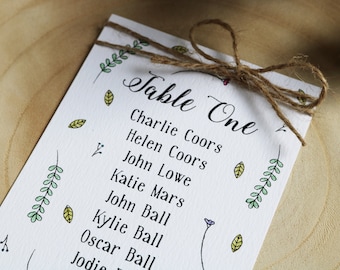 Table One
Charlie Coors
Helen Coors
John Lowe
Katie Mars
John Ball
Kylie Ball
Oscar Ball
Jodie